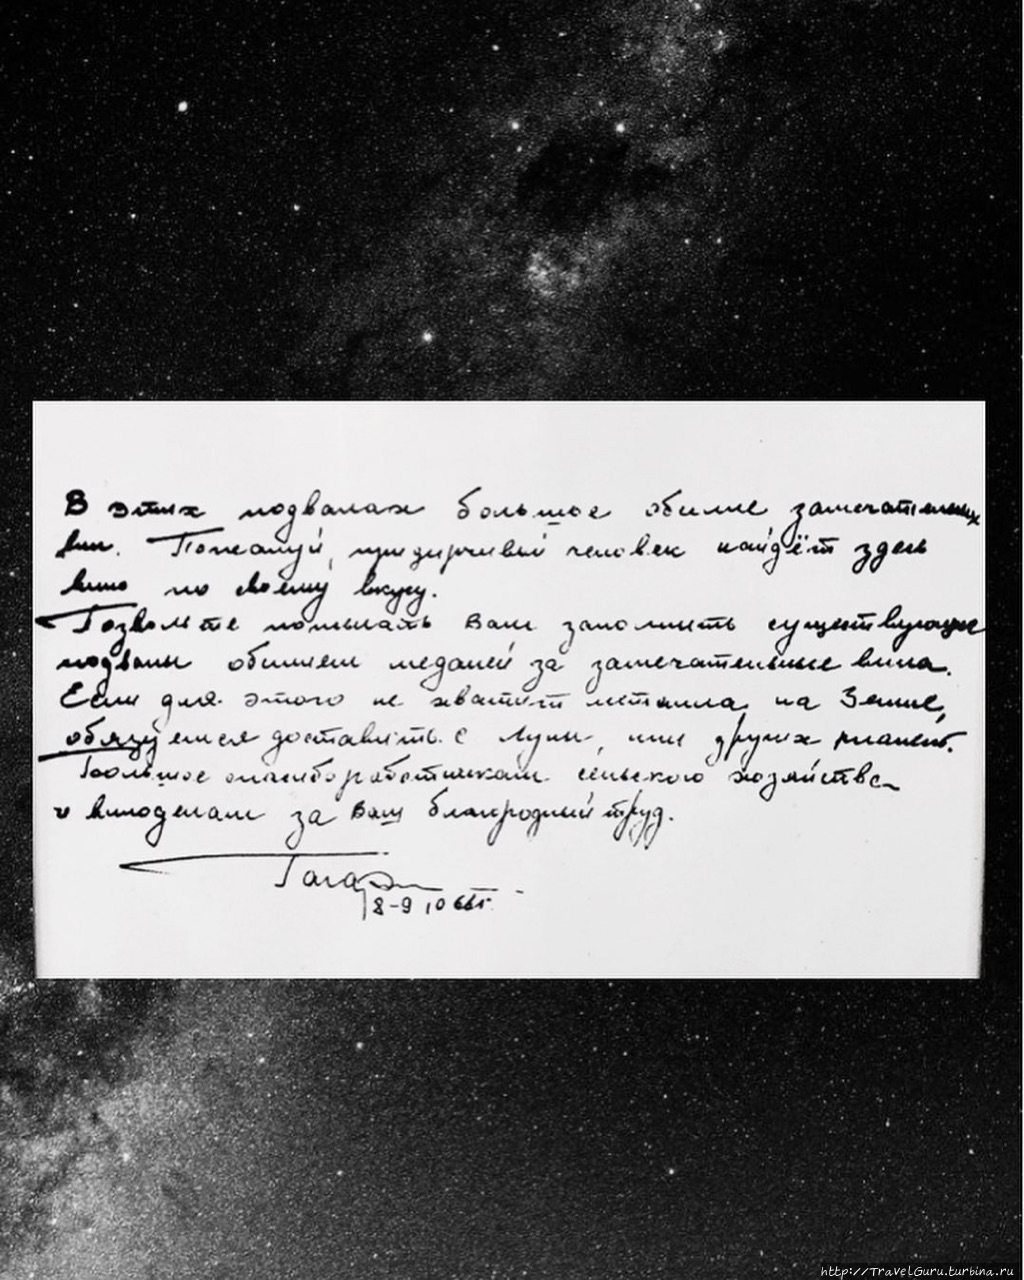 В этих подвалах большое обилие замечательных
вин. Пожалуй, придирчивый человек найдёт здесь
вино по своему вкусу.
Позвольте пожелать Вам заполнить существующие
подвалы обилием медалей за замечательные вина.
Если для этого не хватит металла на Земле,
обязуемся доставить с Луны, или других планет.
Большое спасибо работникам сельского хозяйства
и виноделам за Ваш благородный труд.
Гагарин
8-9 10 66 г.
http://TravelGuru.turbina.ru